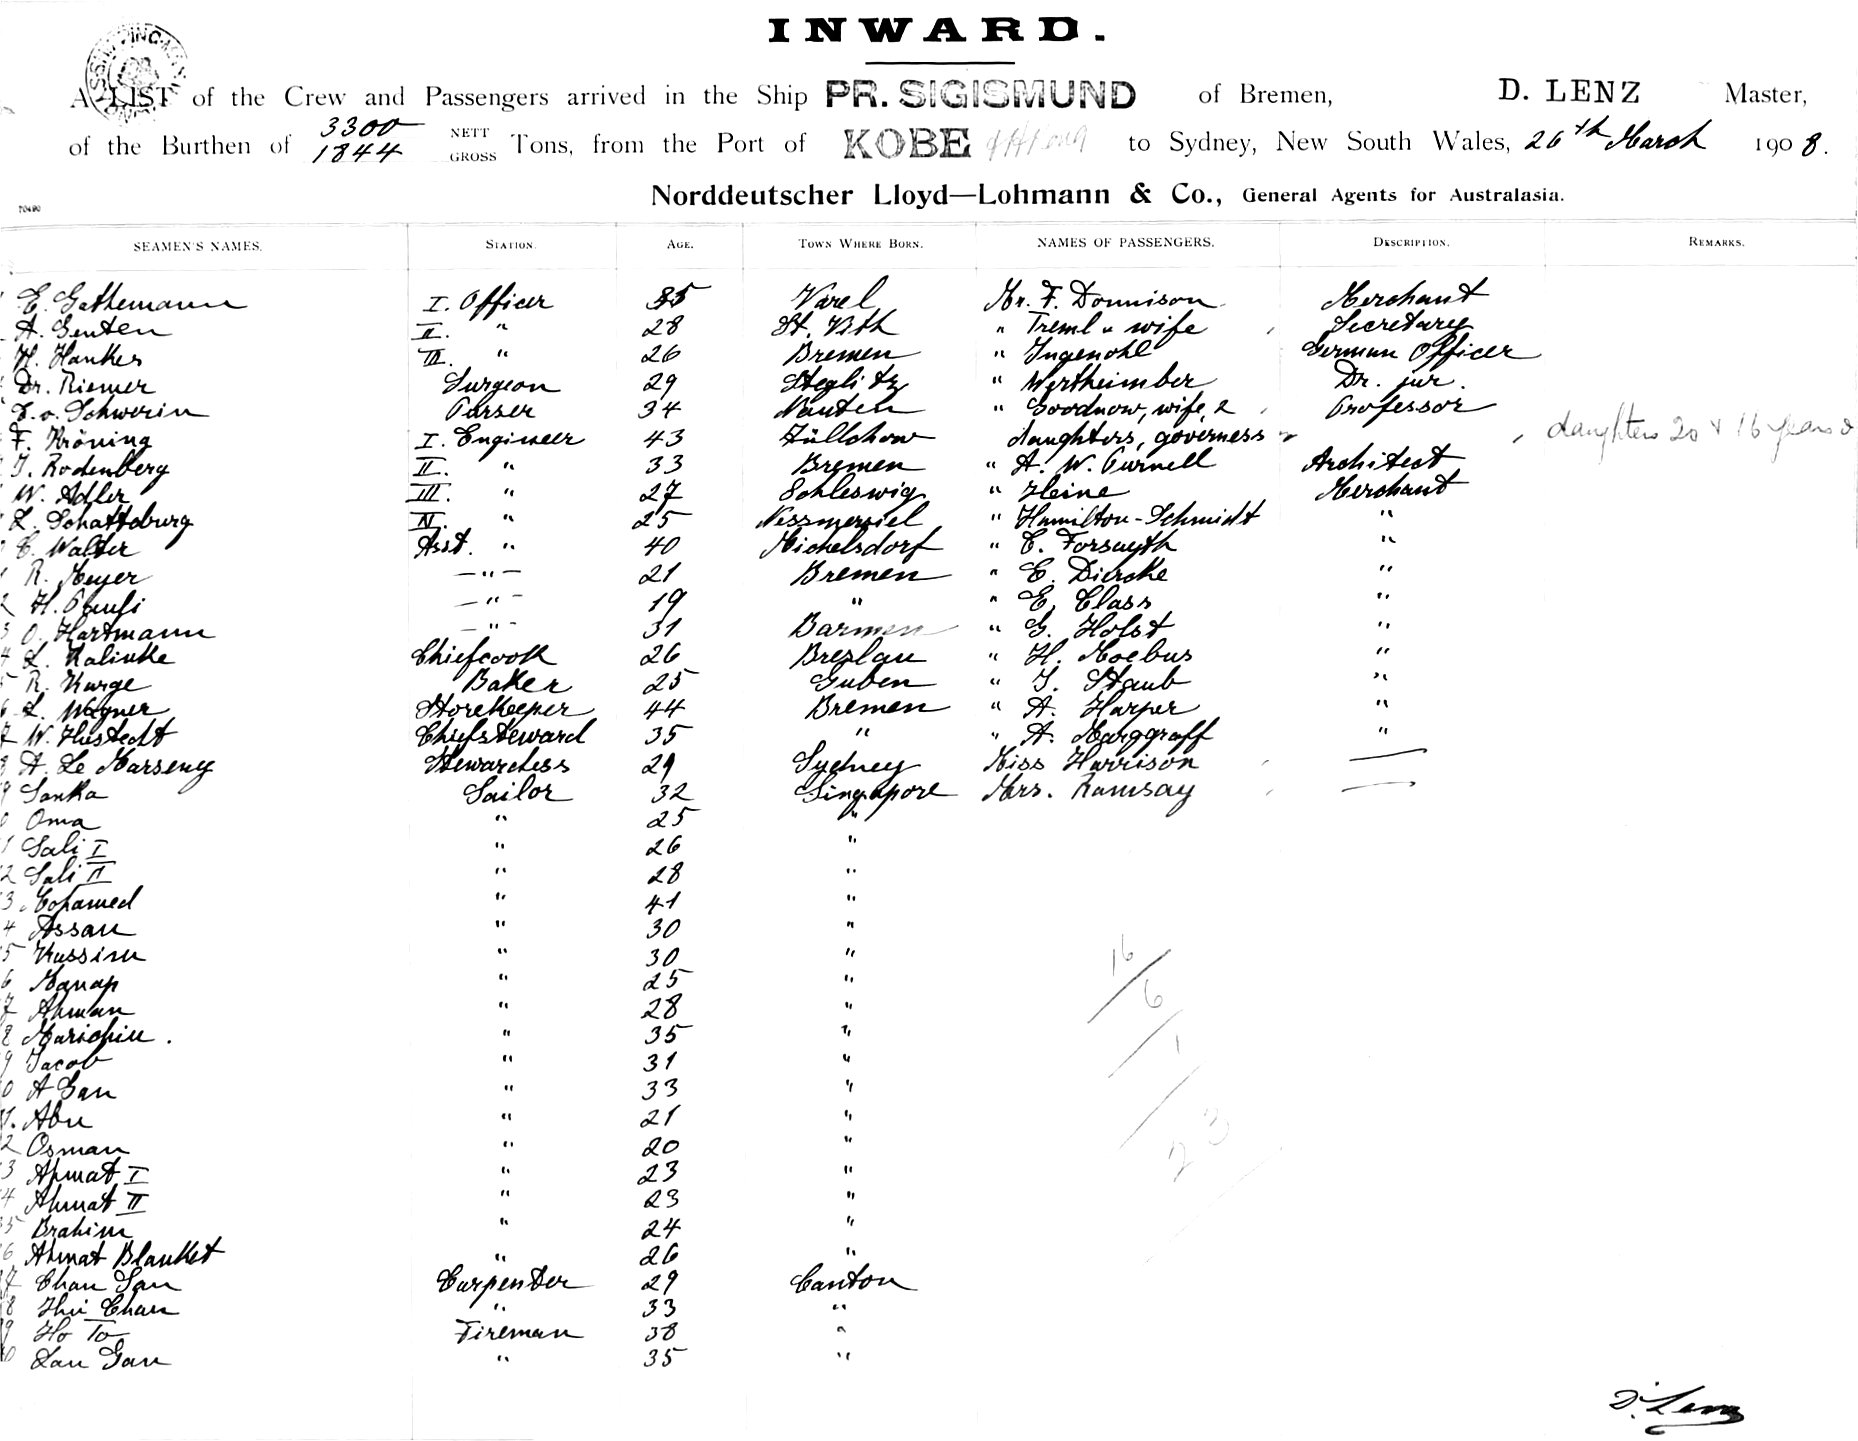 INWARD.
A LIST of the Crew and Passengers arrived in the Ship PR. SIGISMUND of Bremen, D. LENZ Master,
of the Burthen of 3300 1844 NETT GROSS Tons, from the Port of KOBE to Sydney, New South Wales, 26th March 1908.
Norddeutscher Lloyd—Lohmann & Co., General Agents for Australasia.
70490
SEAMEN'S NAMES. STATION. AGE. TOWN WHERE BORN. NAMES OF PASSENGERS. DESCRIPTION. REMARKS.
E. Gathemann I. Officer 35 Varel Mr. F. Donnison Merchant
A. Genten II. " 28 St. Vith " Treml & wife Secretary
H. Hankes III. " 26 Bremen " Ingenohl German Officer
Dr. Riemer Surgeon 29 Steglitz " Wertheimber Dr. jur.
E. v. Schwerin Purser 34 Nauten " Goodnow, wife, 2 Professor
F. Kröning I. Engineer 43 Züllchow daughters, governess daughters 20 & 16 years
J. Rodenberg II. " 33 Bremen " A. W. Purnell Architect
W. Adler III. " 27 Schleswig " Heine Merchant
L. Schattsburg IV. " 25 Nessmersiel " Hamilton-Schmidt "
C. Walter Asst. " 40 Michelsdorf " C. Forsayth "
R. Meyer —"— 21 Bremen " E. Diercke "
2 H. —"— 19 " " E. Class "
3 O. Hartmann —"— 31 Barmen " G. Holst "
4 L. Kalinke Chiefcook 26 Breslau " H. Moebus "
5 R. Karge Baker 25 Guben " J. Staub "
6 L. Wagner Storekeeper 44 Bremen " A. Harper "
7 W. Hustedt Chiefsteward 35 " " A. Marggraff "
8 A. Le Marseny Stewardess 29 Sydney Miss Harrison —
9 Sanka Sailor 32 Singapore Mrs. Ramsay —
0 Oma " 25 "
1 Sali I " 26 "
2 Sali II " 28 "
3 Mohamed " 41 "
4 Assan " 30 "
5 Kassim " 30 "
6 Manap " 25 "
7 Ahman " 28 "
8 " 35 "
9 Jacob " 31 "
0 A Gan " 33 "
1. Abu " 21 "
2 Osman " 20 "
3 Ahmat I " 23 "
4 Ahmat II " 23 "
35 Brahim " 24 "
6 Ahmat Blanket " 26 "
7 Chan San Carpenter 29 Canton
8 Hui Chan " 33 "
9 Ho To Fireman 38 "
0 Lau Gan " 35 "
16
6
1
23
D. Lenz